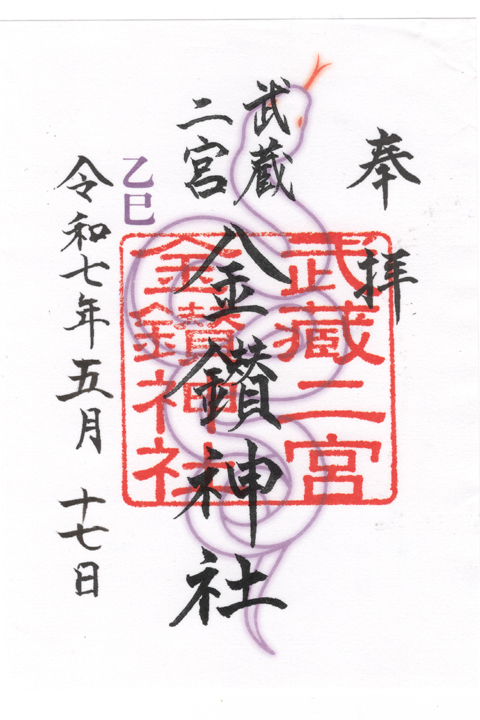 奉拝
武蔵
二宮
金鑚神社
武蔵二宮
金鑚神社
乙巳
令和七年五月十七日